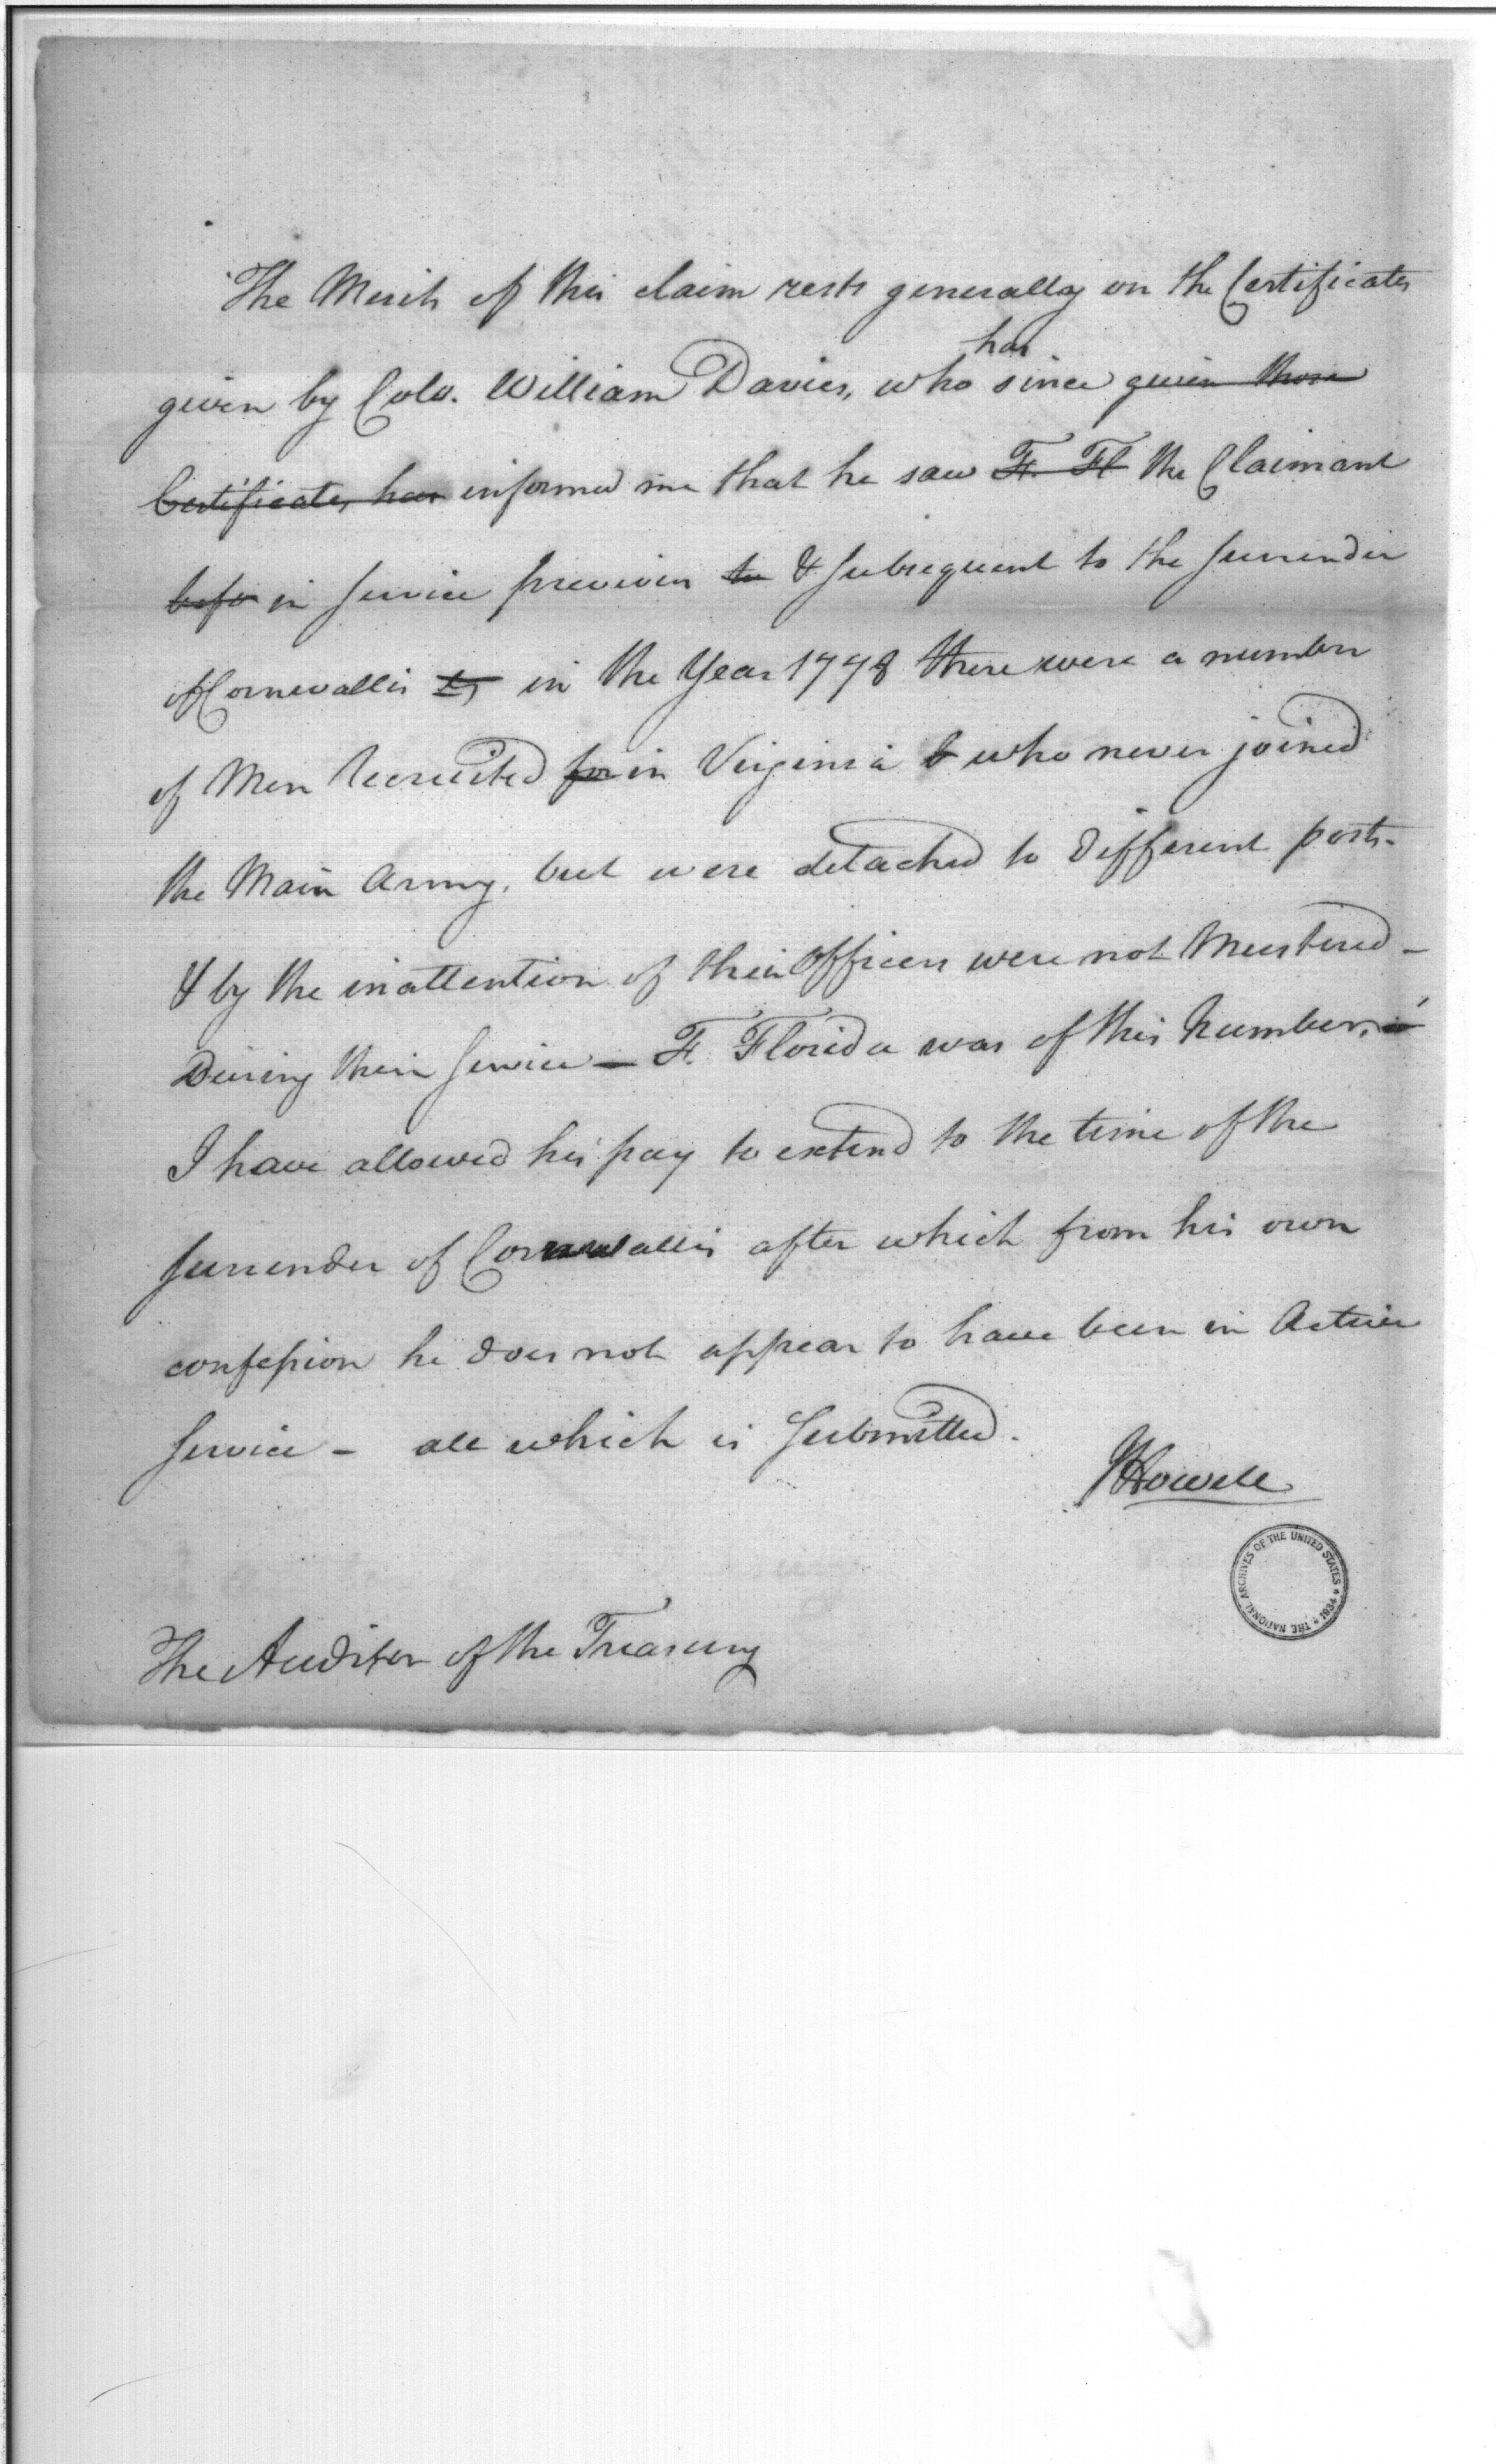 The Merits of this claim rests generally on the Certificates
has
given by Colo. William Davies, who since given those
Certificates, has informed me that he saw F. Fl the Claimant
befor in Service previous to & Subsequent to the Surrender
of Cornwallis in the Year 1778 there were a number
of Men Recruited for in Virginia & who never joined
the Main Army, but were detached to Different posts-
& by the inattention of their Officers were not Mustered-
During their Service - F. Florida was of this Number,
I have allowed his pay to extend to the time of the
Surrender of Cornwallis after which from his own
confession he does not appear to have been in Active
Service - all which is Submitted.
JHowell
THE NATIONAL ARCHIVES OF THE UNITED STATES * 1934 *
The Auditor of the Treasury